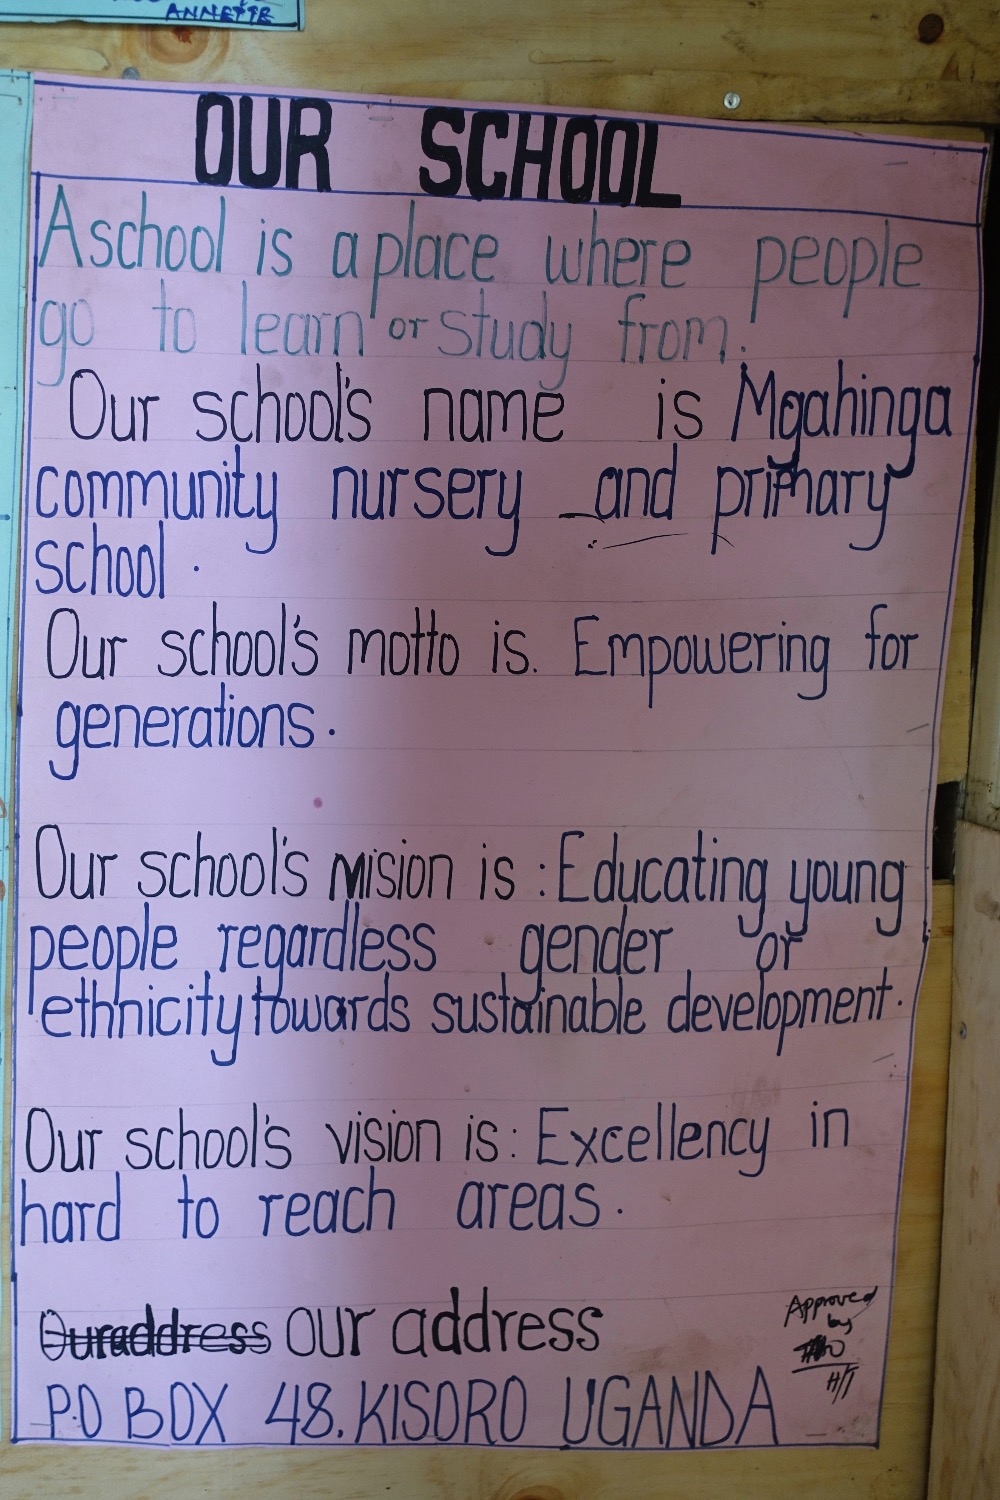 ANNETTE
OUR SCHOOL
A school is a place where people
go to learn or study from.
Our school's name is Mgahinga
community nursery and primary
school.
Our school's motto is. Empowering for
generations.
Our school's mision is : Educating young
people regardless gender or
ethnicity towards sustainable development.
Our school's vision is : Excellency in
hard to reach areas.
Ouraddress our address
P.O BOX 48. KISORO UGANDA
Approved
by
H/T